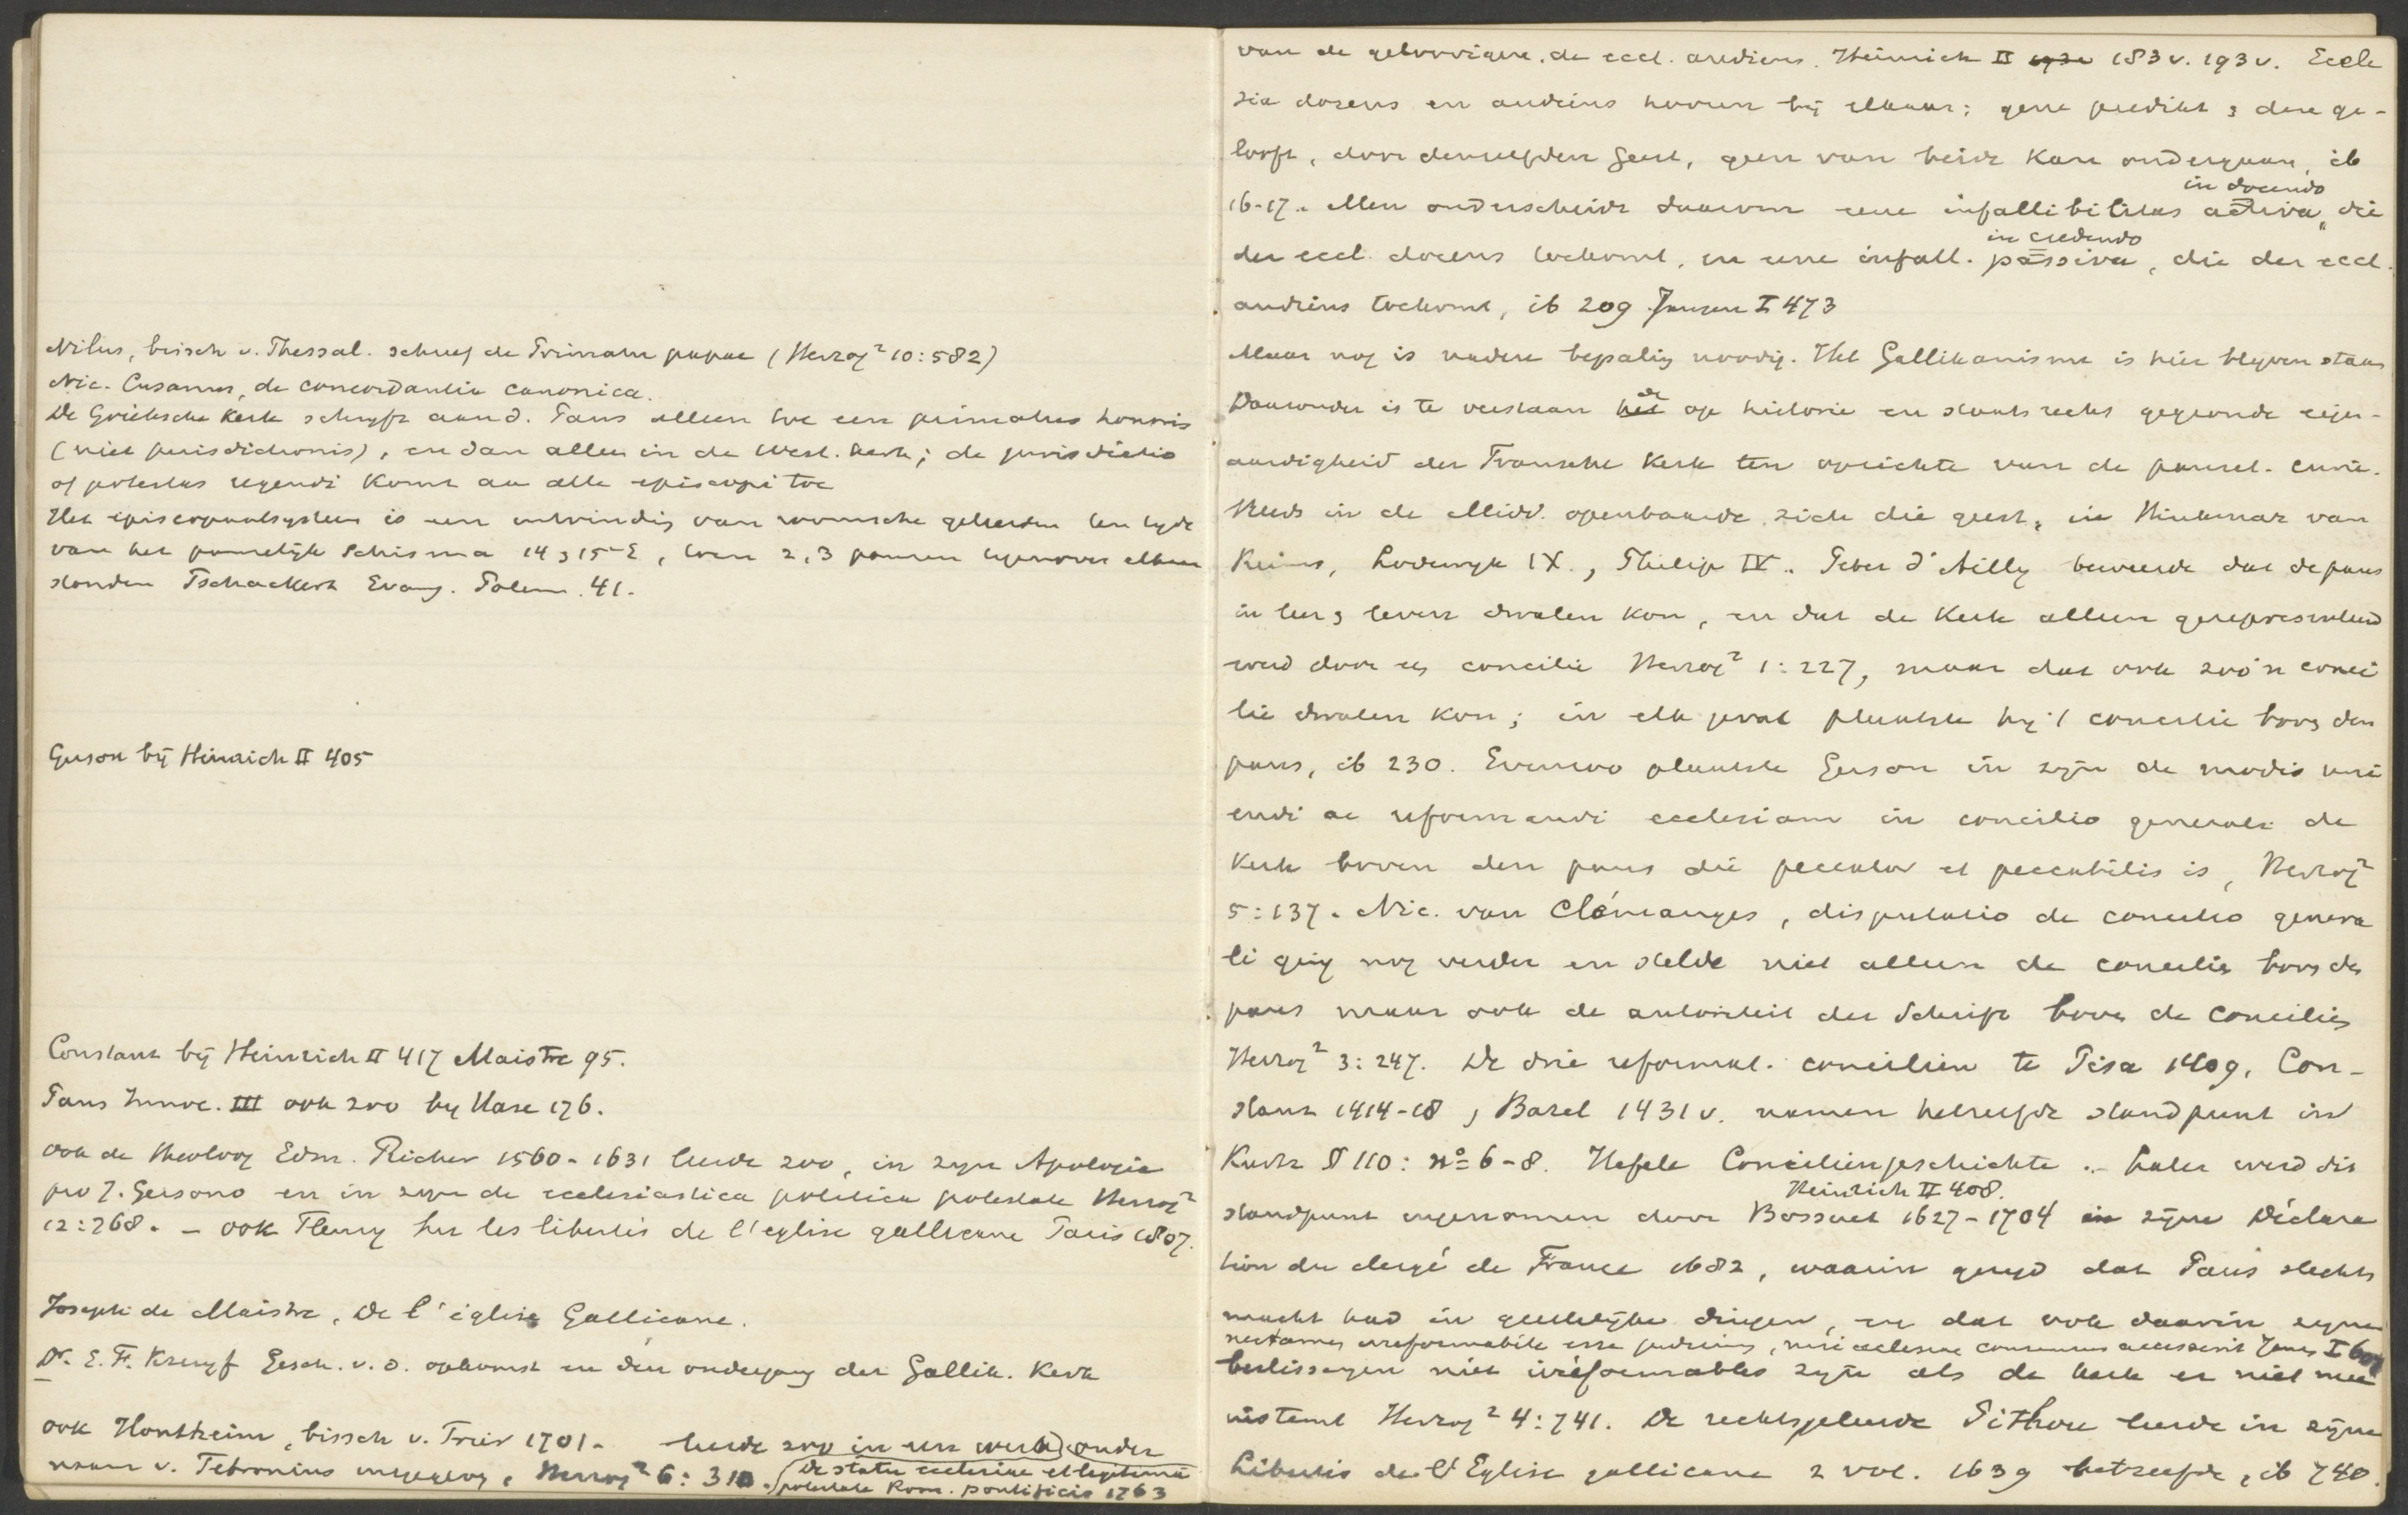 Nilus, bissch v. Thessal. schreef de Primatu papae (Herzog² 10:582)
Nic. Cusanus, de concordantia canonica.
De Grieksche Kerk schryft aan d. Paus alleen toe een primatus honoris
(niet jurisdictionis), en dan alleen in de West. kerk; de jurisdictio
of potestas regendi komt aan alle episcopi toe
Het episcopaalsysteem is een uitvinding van roomsche geleerden ten tyde
van het pauselijk Schisma 14 & 15e E, toen 2, 3 pausen tegenover elkaar
stonden Tschackert Evang. Polem. 41.
Gerson bij Heinrich II 405
Constanz bij Heinrich II 417 Maistre 95.
Paus Innoc. III ook zoo by Hase 176.
ook de theoloog Edm. Richer 1560-1631 leerde zoo, in zyn Apologia
pro J. Gersono en in zyn de ecclesiastica politica potestate Herzog²
12:768. - ook Fleury sur les libertés de l'eglise gallicane Paris 1807.
Joseph de Maistre, De l'église Gallicane.
Dr. E. F. Kruyf Gesch. v. d. opkomst en den ondergang der Gallik. Kerk
ook Hontheim, bissch v. Trier 1701- leerde zoo in een werk onder
naam v. Febronius uitgegeven, Herzog² 6:310. (De statu ecclesiae et legitima
potestate Rom. pontificis 1763
van de geloovigen, de eccl. audiens. Heinrich II 183 v. 193 v. Eccle
sia docens en audiens hooren bij elkaar; gene predikt & deze ge-
looft, door denzelfden Geest, geen van beide kan ondergaan, ib
16-17. Men onderscheidt daarom eene infallibilitas activa, in docendo die
der eccl. docens toekomt, en eene infall. passiva, in credendo die der eccl.
audiens toekomt, ib 209 Jansen I 473
Maar nog is nadere bepaling noodig. Het Gallikanisme is hier blyven staan
Daaronder is te verstaan de op historie en staatsrecht gegronde eigen-
aardigheid der Fransche Kerk ten opzichte van de pausel. curie.
Reeds in de Midd. openbaarde zich die geest, in Hinkmar van
Reims, Lodewyk IX., Philip IV. Peter d'Ailly beweerde dat de paus
in leer & leven dwalen kon, en dat de Kerk alleen gerepresenteerd
werd door een concilie Herzog² 1:227, maar dat ook zoo'n conci
lie dwalen kon; in elk geval plaatste hy 't concilie boven den
paus, ib 230. Evenzoo plaatste Gerson in zyn de modis uni
endi ac reformandi ecclesiam in concilio generali de
Kerk boven den paus die peccator et peccabilis is, Herzog²
5:137. Nic. van Clémanges, disputatio de concilio genera
li ging nog verder en stelde niet alleen de concilies boven de
paus maar ook de autoriteit der Schrift boven de Concilies
Herzog² 3:247. De drie reformat. conciliën te Pisa 1409, Con-
stanz 1414-18, Bazel 1431 v. namen hetzelfde standpunt in
Kurtz § 110: no 6-8. Hefele Conciliengeschichte. Later werd dit
Heinrich II 408.
standpunt ingenomen door Bossuet 1627-1704 in zijne Déclara
tion du clergé de France 1682, waarin gezegd dat Paus slechts
macht had in geestelijke dingen, en dat ook daarin zyne
nec tamen irreformabile esse judicium, nisi ecclesiae consensus accesserit Jansen I
beslissingen niet irréformables zyn als de kerk er niet mee
instemt Herzog² 4:741. De rechtsgeleerde Pithou leerde in zyne
Libertés de l'Eglise gallicane 2 vol. 1639 hetzelfde, ib 740.